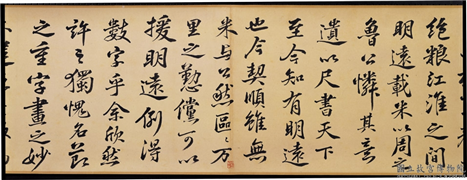 絶粮江淮之間
明遠載米以周之
魯公憐其意
遺以尺書天下
至今知有明遠
也今契順雖無
米与公然區〻万
里之懃儻可以
援明遠例得
數字乎余欣然
許之獨愧名節
之重字畫之妙
國立故宮博物院